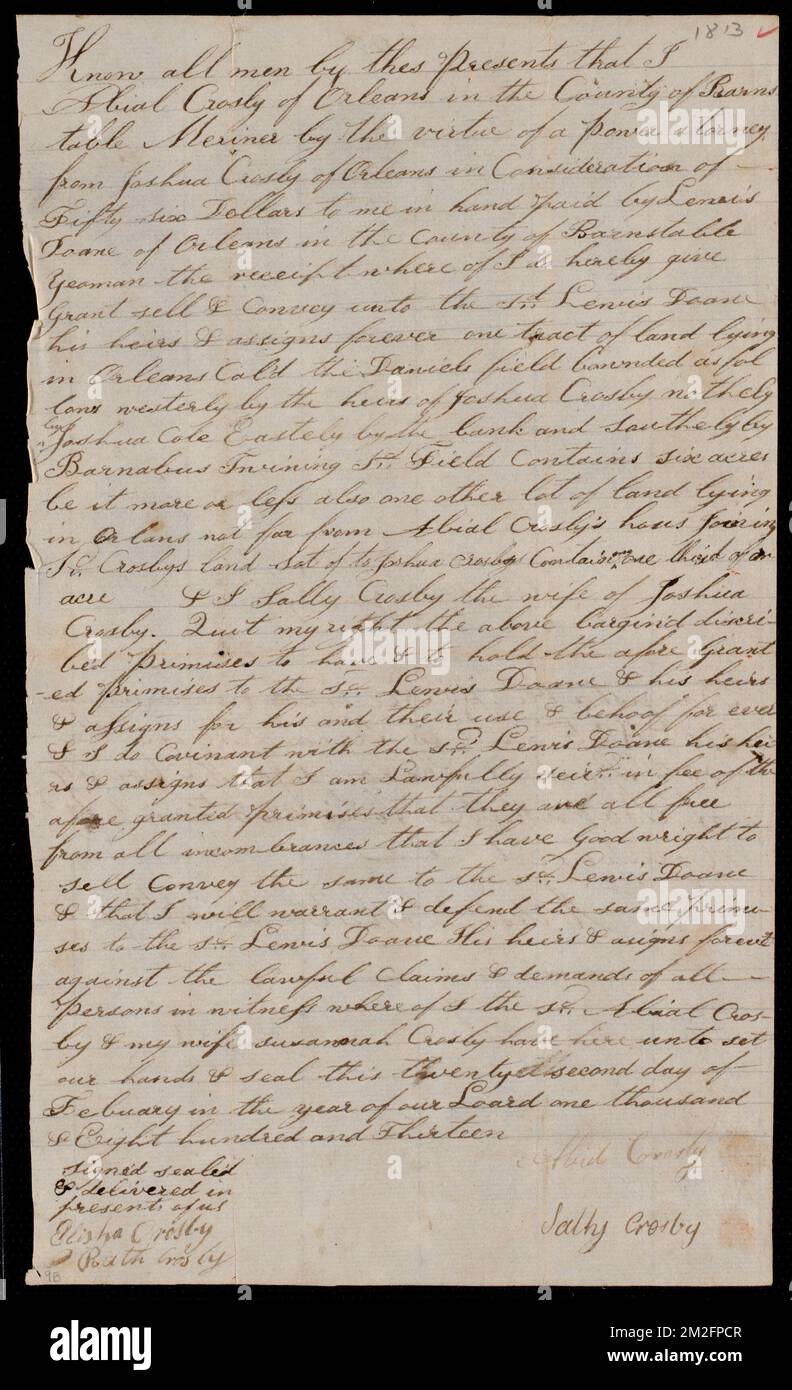 1813
Know all men by thes Presents that I
Abial Crosby of Orleans in the County of Barns
table Meriner by the virtue of a power atorney
from Joshua Crosby of Orleans in Consideration of
Fifty six Dollars to me in hand paid by Lewis
Doane of Orleans in the County of Barnstable
Yeoman the receipt where of I do hereby give
Grant sell & Convey unto the sd. Lewis Doane
his heirs & assigns forever one tract of land lying
in Orleans Cal'd the Daniels field bownded as fol
lows westerly by the heirs of Joshua Crosby nothely
by Joshua Cole Eastely by the bank and Southely by
Barnabus Twining sd. Field Contains six acres
be it more or less also one other lot of land lying
in Orlans not far from Abial Crosby's hous Joining
sd. Crosbys land sot of to Joshua Crosbys Contain one third of an
acre & I Sally Crosby the wife of Joshua
Crosby. Quit my right the above bargind discri-
bed primises to have & to hold the afore Grant
-ed primises to the sd. Lewis Doane & his heirs
& assigns for his and their use & behoof for ever
& I do Covinant with the sd. Lewis Doane his hei
rs & assigns that I am Lawfully in fee of the
afore granted primises that they are all free
from all incombrances that I have Good wright to
sell Convey the same to the sd. Lewis Doane
& that I will warrant & defend the same primi-
ses to the sd. Lewis Doane His heirs & asigns forevr
against the lawful Claims & demands of all
Persons in witness where of I the sd. Abial Cros-
by & my wife susannah Crosby have here unto set
our hands & seal this twenty second day of
Febuary in the year of our Loard one thousand
& Eight hundred and Thirteen
signed sealed
& delivered in
presents of us
Elisha Crosby
Ruth Crosby
Abial Crosby
Sally Crosby
9B
alamy
alamy
Image ID: 2M2FPCR
www.alamy.com